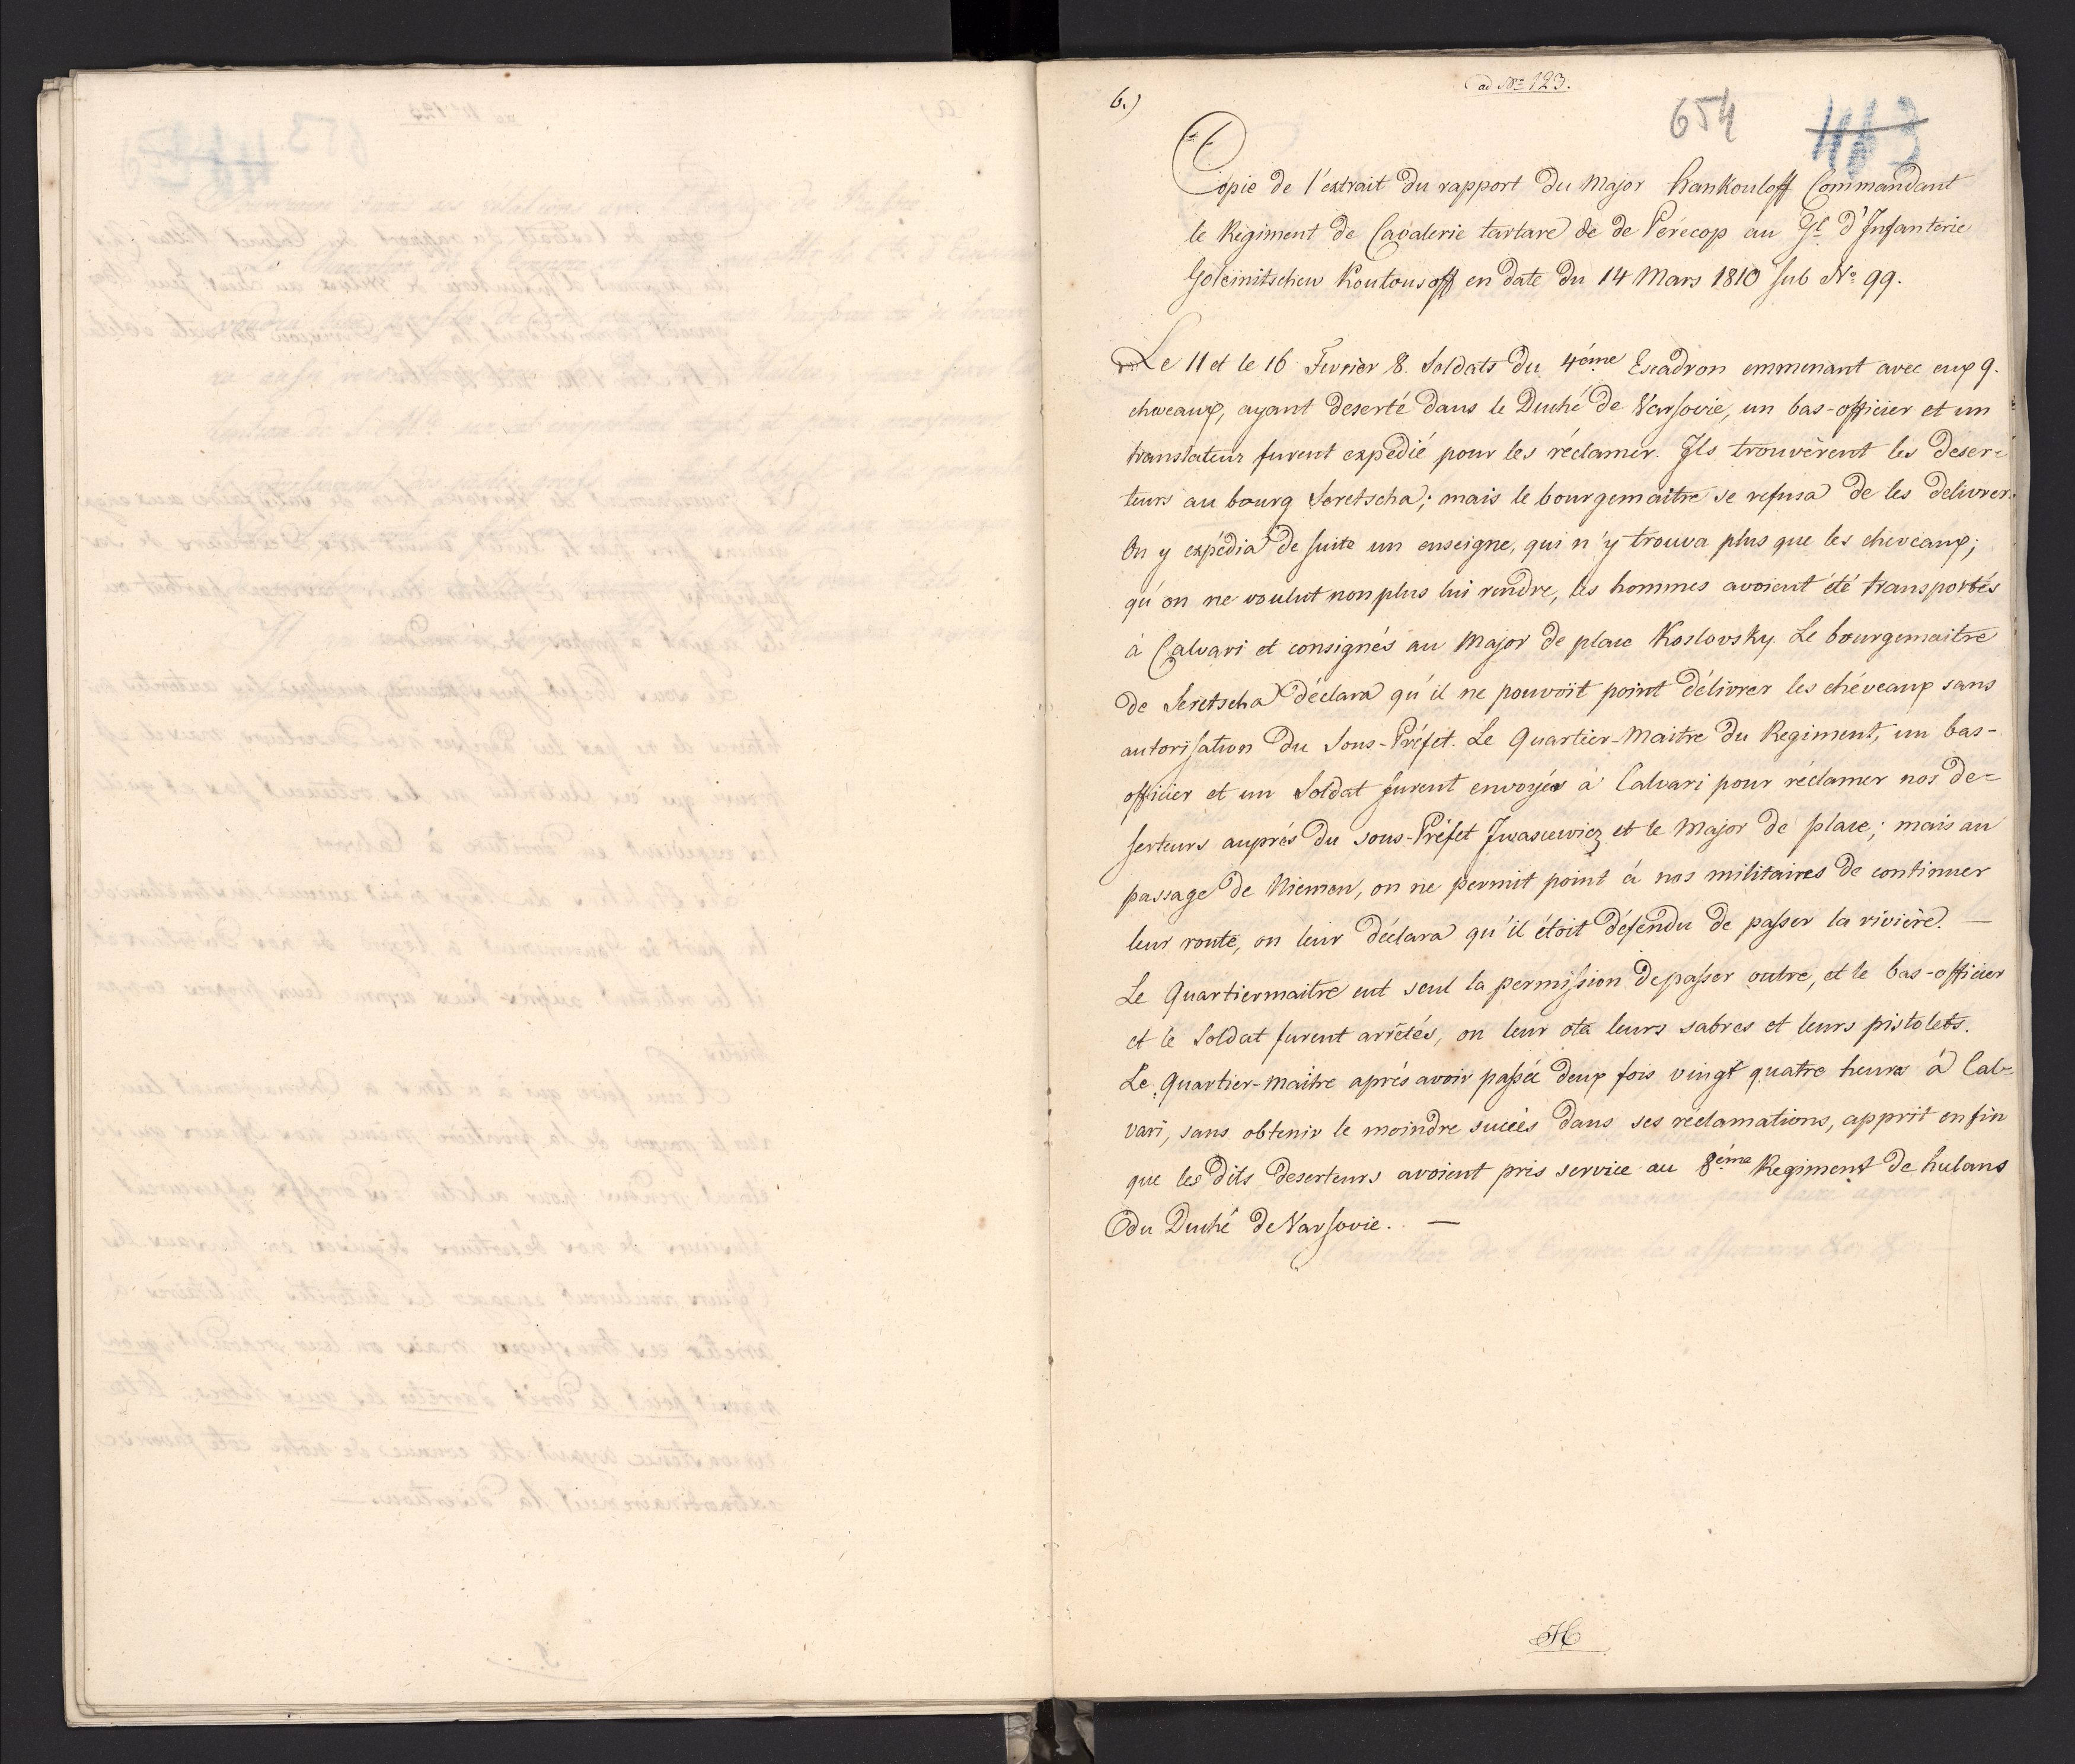 ad No 123.
6.)
654
Copie de l'extrait du rapport du Major hankouloff Commandant
le Régiment de Cavalerie tartare de de Pérécop au Gl d'Infanterie
Goleinitschew Koutousoff en date du 14 Mars 1810 sub No 99.
Le 11 et le 16 Fevrier 8. Soldats du 4éme Escadron emmenant avec eux 9.
cheveaux, ayant deserté dans le Duché de Varsovie, un bas-officier et un
translateur furent expédié pour les réclamer. Ils trouvèrent les deser-
teurs au bourg Seretscha; mais le bourgemaitre se refusa de les delivrer.
On y expédia de suite un enseigne, qui n'y trouva plus que les cheveaux;
qu'on ne voulut non plus lui rendre, les hommes avoient été transportés
à Calvari et consignés au Major de place Koslovsky. Le bourgemaitre
de Seretscha déclara qu'il ne pouvoit point délivrer les chéveaux sans
autorisation du Sous-Préfet. Le Quartier-Maitre du Regiment, un bas-
officier et un Soldat furent envoyés à Calvari pour réclamer nos de=
serteurs auprés du sous-Préfet Iwasiewicz et le Major de place; mais au
passage de Niemen, on ne permit point à nos militaires de continuer
leur route, on leur déclara qu'il étoit défendu de passer la rivière. —
Le Quartiermaitre eut seul la permission de passer outre, et le bas-officier
et le Soldat furent arrêtés, on leur ota leurs sabres et leurs pistolets.
Le Quartier-maitre aprés avoir passée deux fois vingt quatre heures à Cal=
vari, sans obtenir le moindre succés dans ses réclamations, apprit enfin
que les dits deserteurs avoient pris service au 8éme Regiment de hulans
du Duché de Varsovie. —